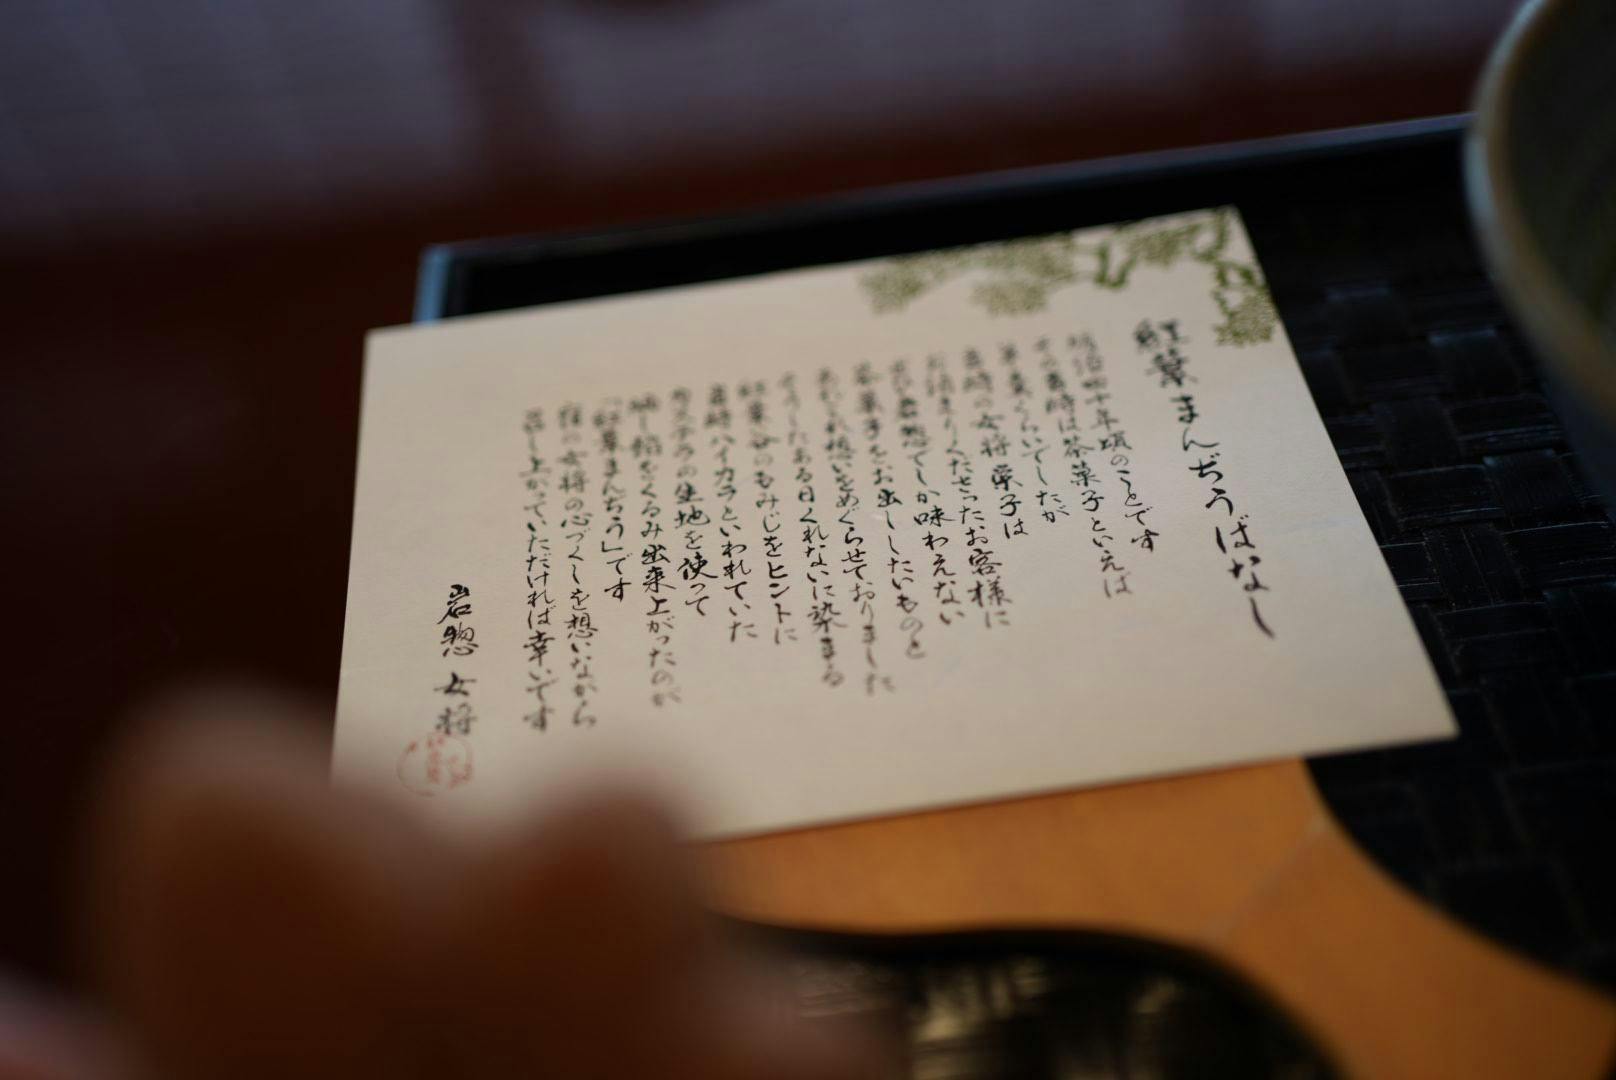 紅葉まんぢうばなし
明治四十年頃のことです
その当時は茶菓子といえば
羊羹ぐらいでしたが
当時の女将 栄子は
お泊まりくださったお客様に
ぜひ岩惣でしか味わえない
茶菓子をお出ししたいものと
あれこれ想いをめぐらせておりました
そうしたある日くれないに染まる
紅葉谷のもみじをヒントに
当時ハイカラといわれていた
カステラの生地を使って
漉し餡をくるみ出来上がったのが
「紅葉まんぢう」です
宿の女将の心づくしを想いながら
召し上がっていただければ幸いです
岩惣 女将